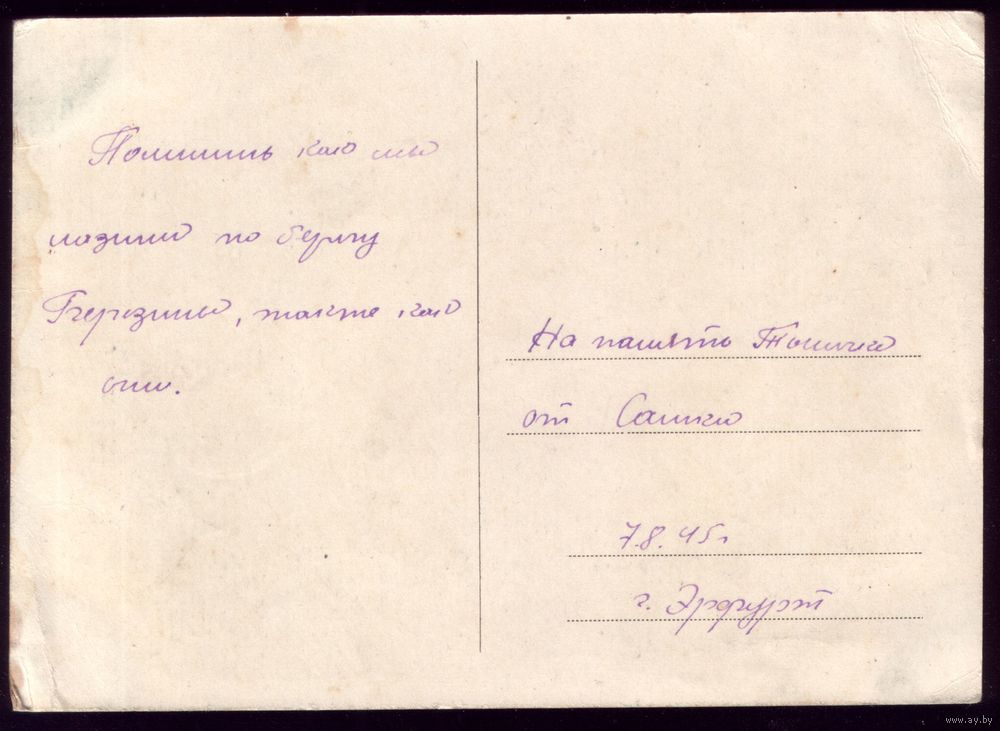 Помнишь как мы
лазили по берегу
Березины, также как
они.
На память Тоničке
от Сашки
7.8.45г
г. Эрфурт
www.ay.by